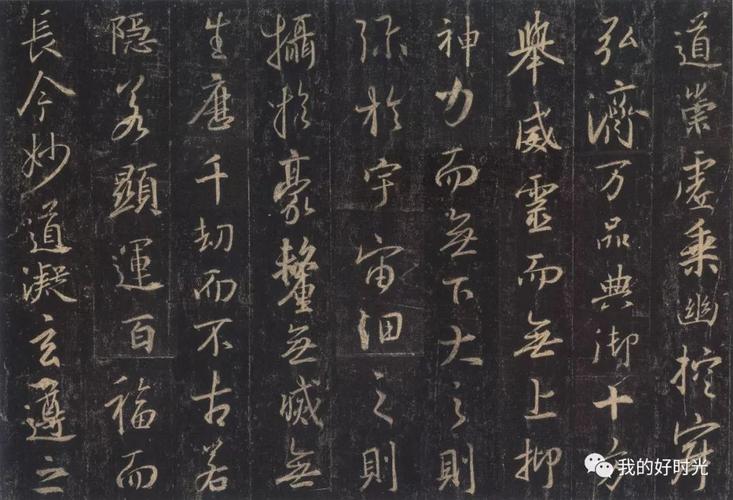 道崇虚乗幽控寂
弘濟万品典御十方
舉威靈而無上抑
神力而無下大之則
弥於宇宙細之則
攝於豪釐無滅無
生歷千劫而不古若
隱若顯運百福而
長今妙道凝玄遵之
我的好时光